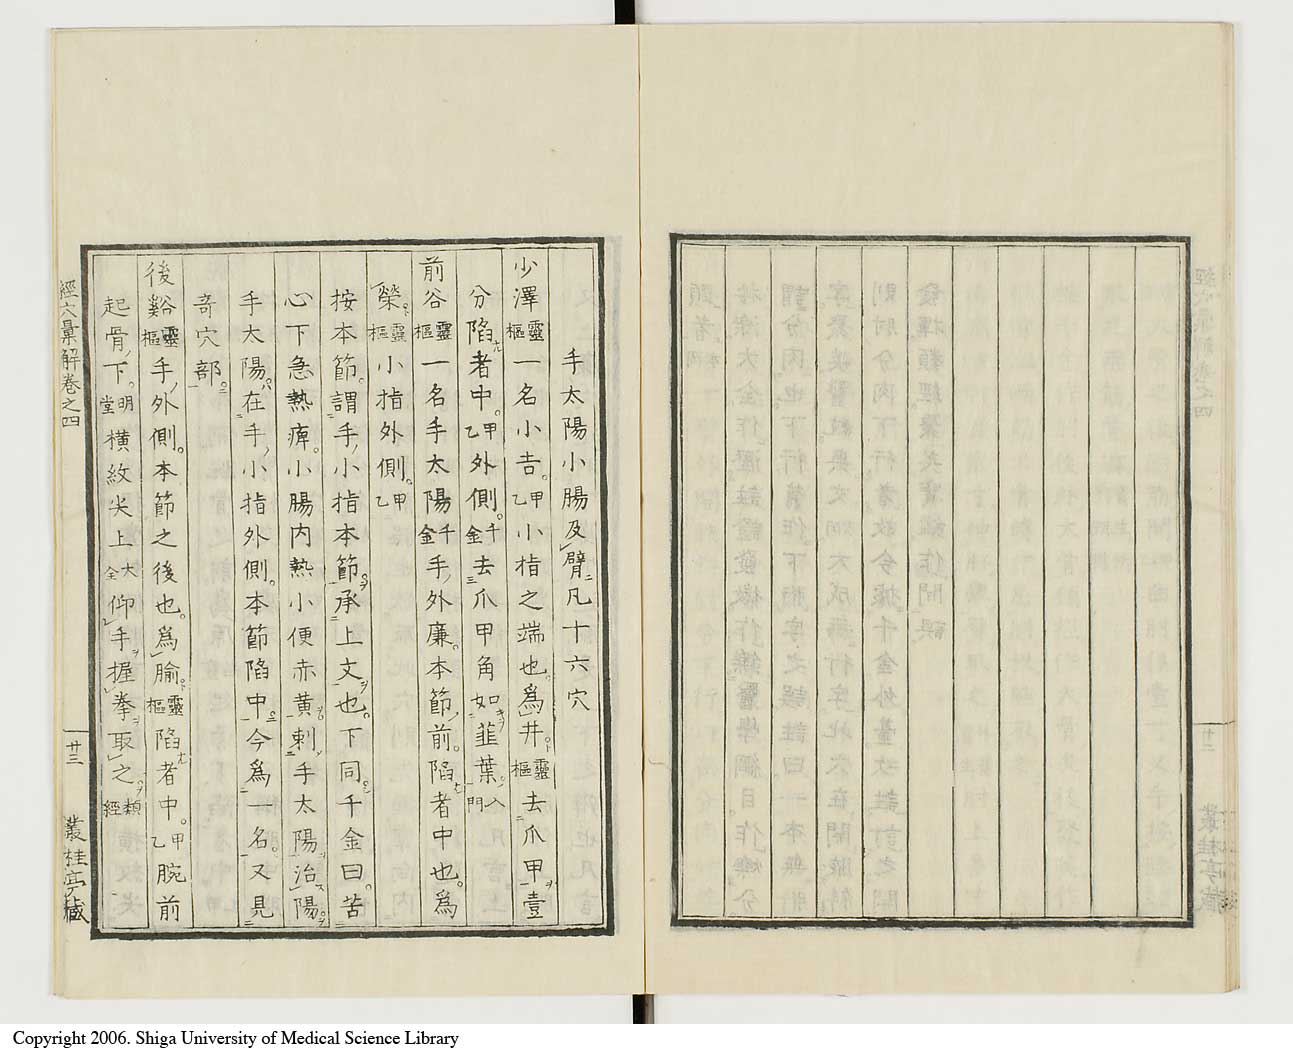 手太陽小腸及臂凡十六穴
少澤靈樞一名小吉。甲乙小指之端也。爲井。靈樞去爪甲壹
分陷者中。甲乙外側。千金去爪甲角如韮葉。入門
前谷靈樞一名手太陽千金手外廉。本節前。陷者中也。爲
滎。靈樞小指外側。甲乙
按本節。謂手小指本節。承上文也。下同。千金曰。苦
心下急熱痺。小腸内熱小便赤黄刺手太陽治陽。
手太陽。在手小指外側。本節陷中。今爲一名。又見
竒穴部。
後谿靈樞手外側。本節之後也。爲腧。靈樞陷者中。甲乙腕前
起骨下。明堂横紋尖上大全仰手握拳取之。類經
經穴彙解卷之四
廿三
叢桂亭藏
Copyright 2006. Shiga University of Medical Science Library